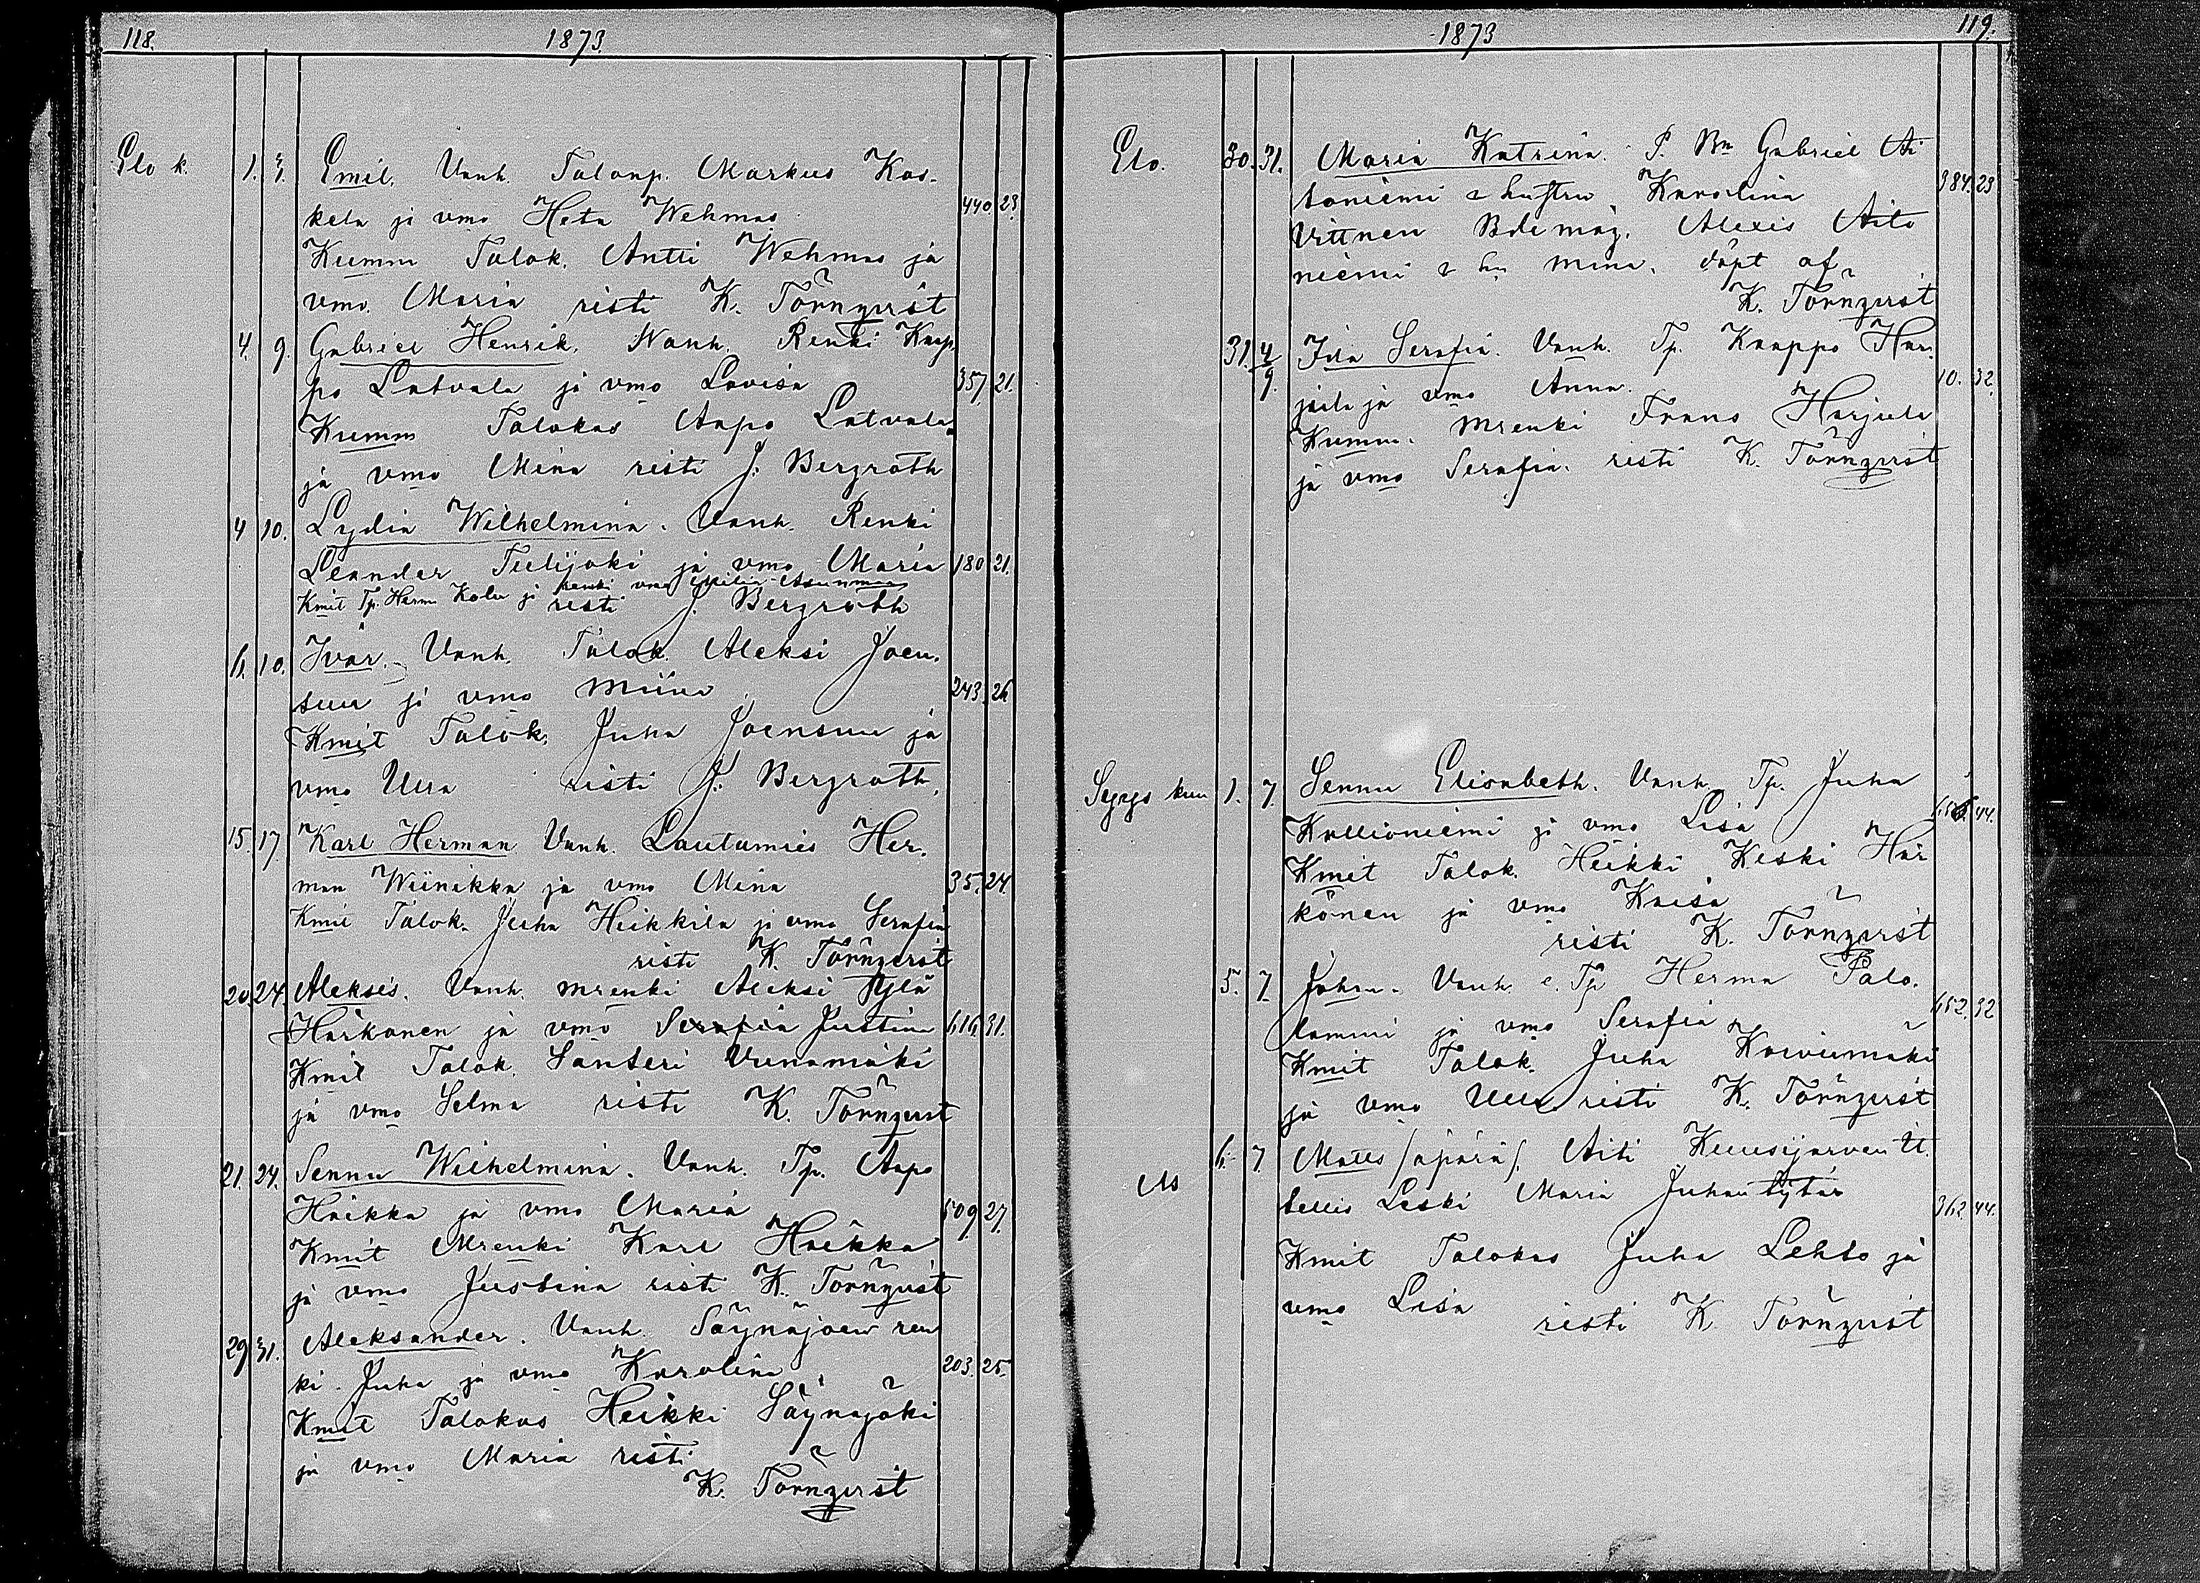 118. 1873
Elo k. 1. 3. Emil. Vanh. Talonp. Markus Kos-
kela ja vmo Heta Wehmas 440 23.
Kumm Talok. Antti Wehmas ja
vmo. Maria risti K. Törnqvist
4. 9. Gabriel Henrik. Vanh. Renki Kaap-
po Latvala ja vmo Lovisa 357. 21.
Kumm Talokas Aapo Latvala
ja vmo Mina risti J. Bergroth
4 10. Lydia Wilhelmina. Vanh. Renki
Leander Teelijoki ja vmo Maria 180 21.
Kmit Tp. Herm Kola ja renki vmo Asunmaa
risti J. Bergroth
6. 10. Ivar. Vanh. Talok. Aleksi Joen-
suu ja vmo Miina 243. 26
Kmit Talok. Juha Joensuu ja
vmo Ulla risti J. Bergroth.
15. 17 Karl Herman Vanh. Lautamies Her-
man Wiinikka ja vmo Mina 35. 24.
Kmit Talok. Juha Heikkila ja vmo Serafia
risti K. Törnqvist
20 24 Aleksis. Vanh. mrenki Aleksi Kylä
Härkonen ja vmo Serafia Justina 616 31.
Kmit Talok. Santeri Vunamäki
ja vmo Selma risti K. Törnqvist
21. 24. Sennu Wilhelmina. Vanh. Tp. Aapo
Haikka ja vmo Maria 509 27.
Kmit Mrenki Karl Haikka
ja vmo Justina risti K. Törnqvist
29 31. Aleksander. Vanh. Säynäjoen ren
ki Juha ja vmo Karolina 203. 25.
Kmit Talokas Heikki Säynajoki
ja vmo Maria risti
K. Törnqvist
1873 119.
Elo. 30. 31. Maria Katrina. P. Bn Gabriel Ai
toniemi & hustru Karolina 384. 23
Vittnen Bdemåg. Alexis Aito
niemi & hu Mina. döpt af
K. Törnqvist
31. 4/9. Ida Serafia. Vanh. Tp. Kaappo Har-
jula ja vmo Anna. 10. 32.
Kumm. Mrenki Frans Harjula
ja vmo Serafia. risti K. Törnqvist
Syys kuu 1. 7. Sennu Elisabeth. Vanh. Tp. Juha
Kallioniemi ja vmo Lisa 44.
Kmit Talok. Heikki Keski Här
könen ja vmo Kaisa
risti K. Törnqvist
5. 7. Johan. Vanh. e. Tp Herma Palo-
lammi ja vmo Serafia 652. 32
Kmit Talok. Juha Koivumäki
ja vmo Ulla risti K. Törnqvist
6. 7 Matts /äpärä/. Äiti Kuusijärven It.
Ms sellis Leski Maria Juhan tytär 362. 44.
Kmit Talokas Juha Lehto ja
vmo Lisa risti K. Törnqvist